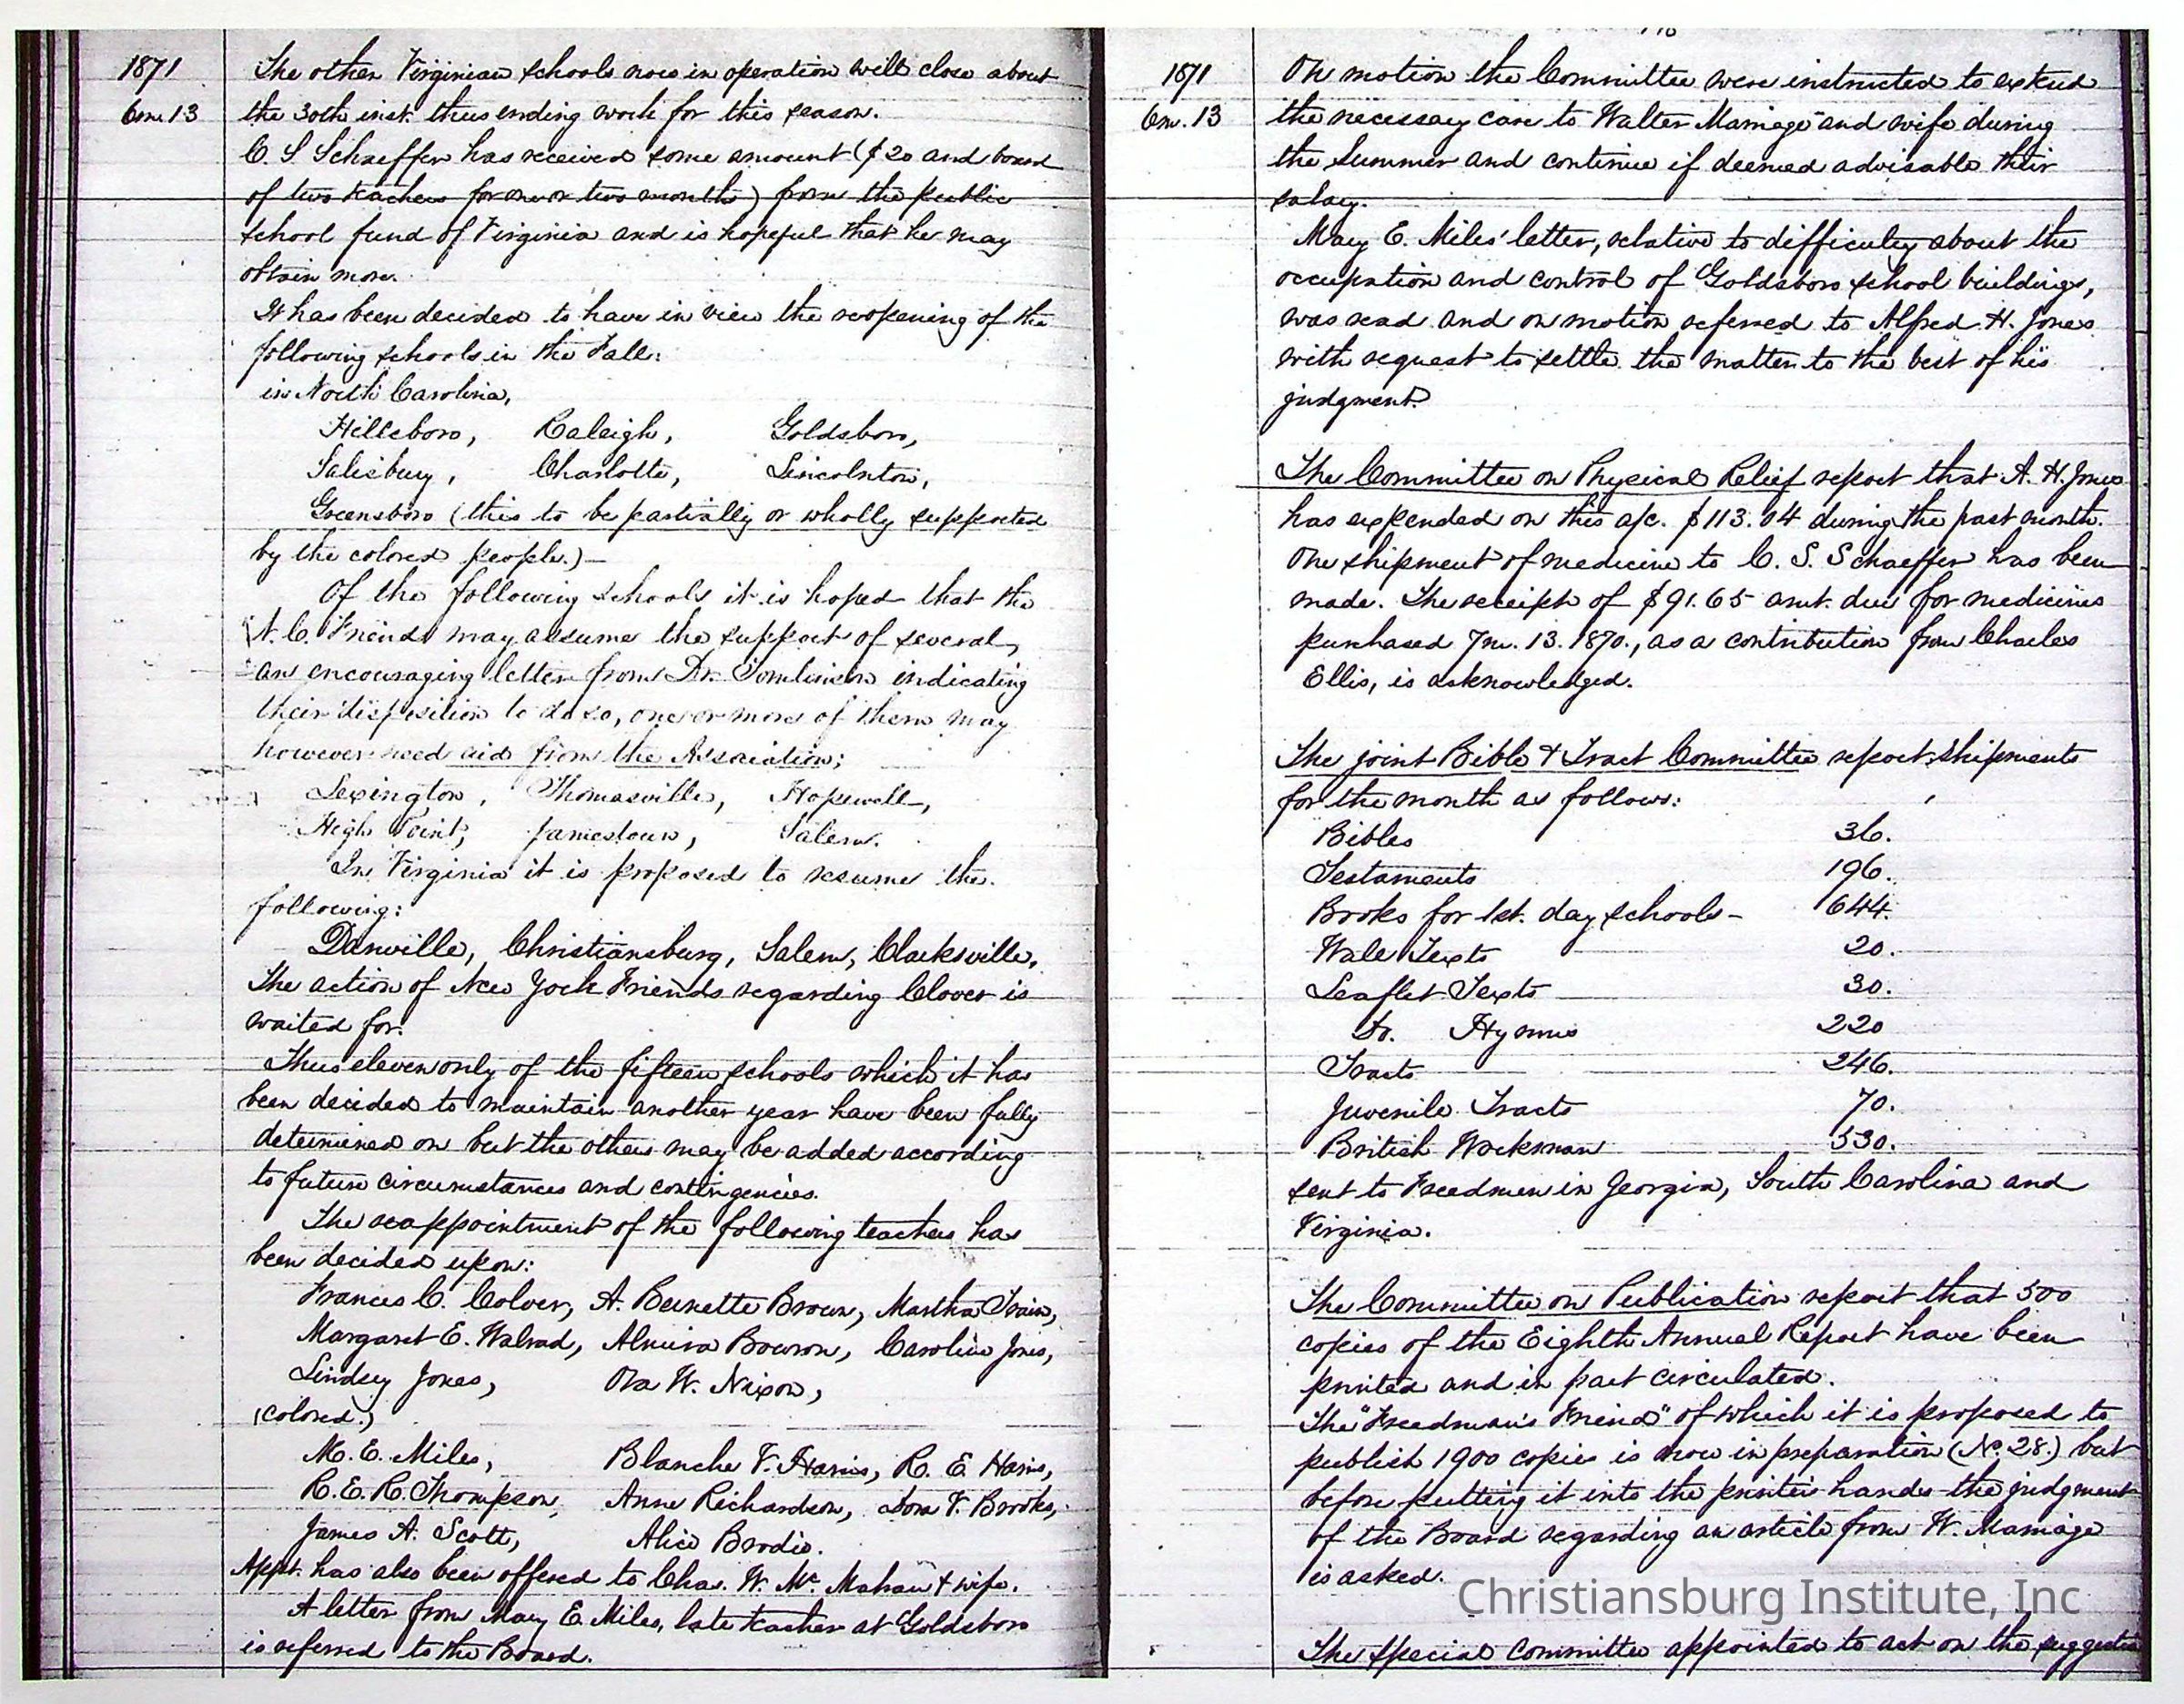 1871
6m. 13
The other Virginian schools now in operation will close about
the 30th inst. thus ending work for this season.
C. S Schaeffer has received some amount ($20 and board
of two teachers for one or two months) from the public
school fund of Virginia and is hopeful that he may
obtain more.
It has been decided to have in view the reopening of the
following schools in the Fall:
in North Carolina,
Hillsboro, Raleigh, Goldsboro,
Salisbury, Charlotte, Lincolnton,
Greensboro (this to be partially or wholly supported
by the colored people.)—
Of the following schools it is hoped that the
N. C. Friends may assume the support of several,
an encouraging letter from Dr. Tomlinson indicating
their disposition to do so, one or more of them may
however need aid from the Association;
Lexington, Thomasville, Hopewell,
High Point, Jamestown, Salem.
In Virginia it is proposed to resume the
following:
Danville, Christiansburg, Salem, Clarksville,
The action of New York Friends regarding Clover is
waited for.
Thus eleven only of the fifteen schools which it has
been decided to maintain another year have been fully
determined on but the others may be added according
to future circumstances and contingencies.
The reappointment of the following teachers has
been decided upon:
Frances C. Colver, A. Brunette Brown, Martha Train,
Margaret E. Walrad, Almira Bowron, Caroline Jones,
Lindsey Jones, Ova W. Nixon,
(colored.)
M. E. Miles, Blanche V. Harris, R. E. Harris,
R. E. R. Thompson, Anne Richardson, Dora V. Brooks,
James A. Scott, Alice Brodie.
Appt. has also been offered to Chas. W. Mc. Mahan & wife.
A letter from Mary E. Miles, late teacher at Goldsboro
is referred to the Board.
1871
6m. 13
On motion the Committee were instructed to extend
the necessary care to Walter Marriage and wife during
the Summer and continue if deemed advisable their
salary.
Mary E. Miles' letter, relative to difficulty about the
occupation and control of Goldsboro school buildings,
was read and on motion referred to Alfred H. Jones
with request to settle the matter to the best of his
judgment.
The Committee on Physical Relief report that A. H. Jones
has expended on this a/c. $113.04 during the past month.
One shipment of medicine to C. S. Schaeffer has been
made. The receipt of $91.65 amt. due for medicines
purchased 7m. 13. 1870., as a contribution from Charles
Ellis, is acknowledged.
The joint Bible & Tract Committee report shipments
for the month as follows:
Bibles 36.
Testaments 196.
Books for 1st. day schools - 644.
Wall Texts 20.
Leaflet Texts 30.
Do. Hymns 220
Tracts 246.
Juvenile Tracts 70.
British Workman 530.
sent to Freedmen in Georgia, South Carolina and
Virginia.
The Committee on Publication report that 500
copies of the Eighth Annual Report have been
printed and in part circulated.
The "Freedman's Friend" of which it is proposed to
publish 1900 copies is now in preparation (No. 28.) but
before putting it into the printer's hands the judgment
of the Board regarding an article from W. Marriage
is asked.
Christiansburg Institute, Inc
The Special Committee appointed to act on the suggestion